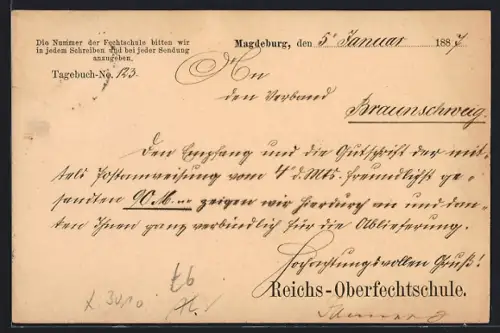 Die Nummer der Fechtschule bitten wir
in jedem Schreiben und bei jeder Sendung
anzugeben.
Tagebuch-No. 123.
Magdeburg, den 5' Januar 1887
An
den Verband
Braunschweig.
Den Empfang und die Gutschrift der mit-
tels Postanweisung vom 4' d. Mts. freundlichst ge-
sandten 90 M. zeigen wir hierdurch an und dan-
ken Ihnen ganz verbindlich für die Ablieferung.
Hochachtungsvollen Gruß!
Reichs-Oberfechtschule.